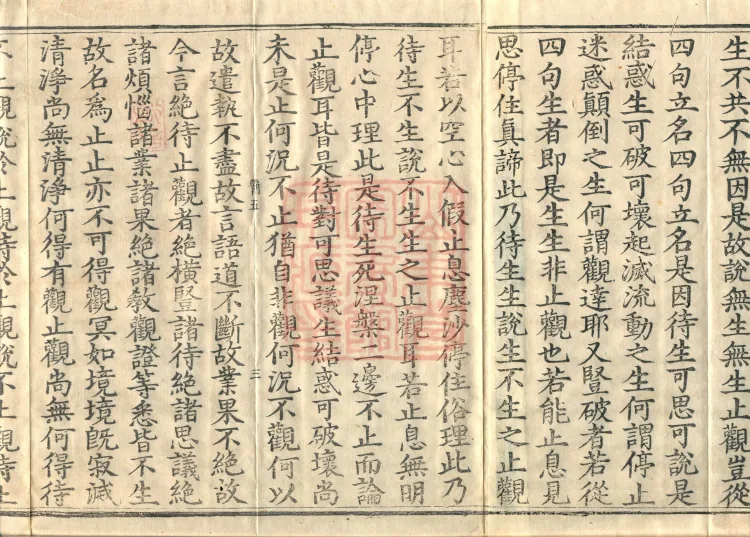 生不共不無因是故說無生無生止觀豈從
四句立名四句立名是因待生可思可說是
結惑生可破可壞起滅流動之生何謂停止
迷惑顛倒之生何謂觀達耶又豎破者若從
四句生者即是生生非止觀也若能止息見
思停住真諦此乃待生生說生不生之止觀
耳若以空心入假止息塵沙停住俗理此乃
待生不生說不生生之止觀耳若止息無明
停心中理此是待生死涅槃二邊不止而論
止觀耳皆是待對可思議生結惑可破壞尚
未是止何況不止猶自非觀何況不觀何以
故遣執不盡故言語道不斷故業果不絕故
今言絕待止觀者絕橫豎諸待絕諸思議絕
諸煩惱諸業諸果絕諸教觀證等悉皆不生
故名為止止亦不可得觀冥如境境既寂滅
清淨尚無清淨何得有觀止觀尚無何得待
不止觀說於止觀待於止觀說不止觀待止
五
三